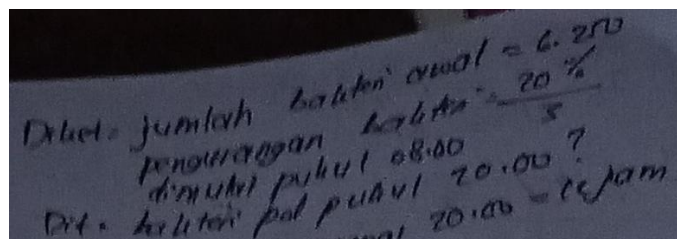 Diket = jumlah bakteri awal = 6.250
pengurangan bakteri = 20% / 3
dimulai pukul 08.00
Dit = bakteri pd pukul 20.00 ?
20.00 = jam